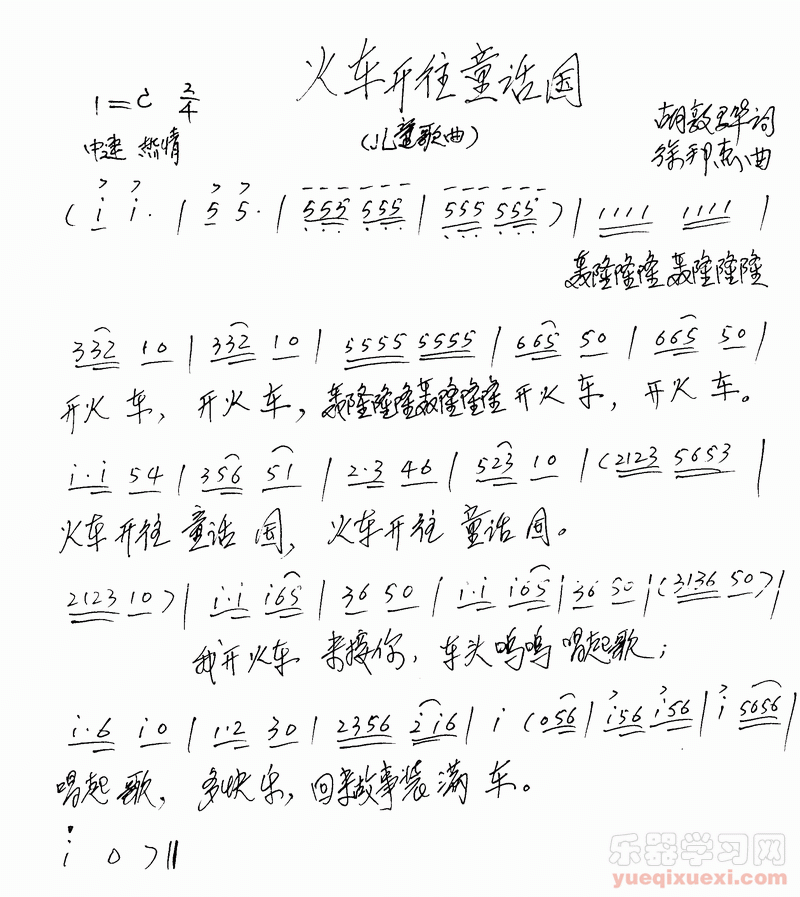 火车开往童话国
1=C 2/4
(儿童歌曲)
中速 热情
胡敦骅词
徐邦杰曲
( i i· | 5 5· | 555 555 | 555 555 ) | 1111 1111 |
轰隆隆隆 轰隆隆隆
332 10 | 332 10 | 5555 5555 | 665 50 | 665 50 |
开火 车, 开火 车, 轰隆隆隆轰隆隆隆 开火 车, 开火 车。
i·i 54 | 356 51 | 2·3 46 | 523 10 | (2123 5653 |
火车 开往 童话 国, 火车 开往 童话 国。
2123 10 ) | i·i i65 | 36 50 | i·i i65 | 36 50 | (2136 50 ) |
我开火车 来接你, 车头呜呜 唱起歌;
i·6 i0 | 1·2 30 | 2356 2i6 | i (056 | i56 i56 | i 5656 |
唱起 歌, 多快 乐, 回来故事装 满 车。
i 0 ) ‖
乐器学习网
yueqixuexi.com